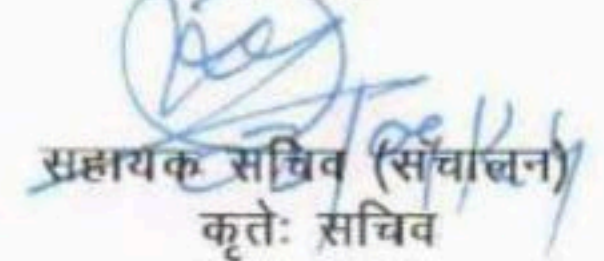 सहायक सचिव (संचालन)
कृतेः सचिव